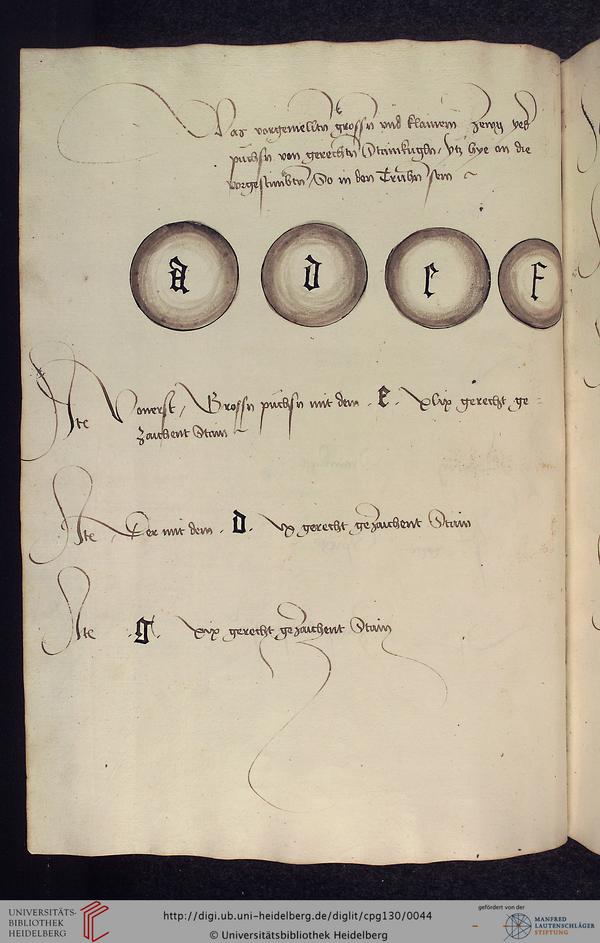 Was vorgemelltn grossn vnd klainern zeug yeß
püchsn von gerechtn Stainkugln, ytz hye an die
vorgestimbtn, So in den Truhn sein
a d e f
Ite Vonerst, Grossn püchsn mit dem . E . xlix gerecht ge-
zaichent Stain
Ite Der mit dem . d . vx gerecht gezaichent Stain
Ite . g . xix gerecht gezaichent Stain
UNIVERSITÄTS-
BIBLIOTHEK
HEIDELBERG
http://digi.ub.uni-heidelberg.de/diglit/cpg130/0044
© Universitätsbibliothek Heidelberg
gefördert von der
MANFRED
LAUTENSCHLÄGER
STIFTUNG